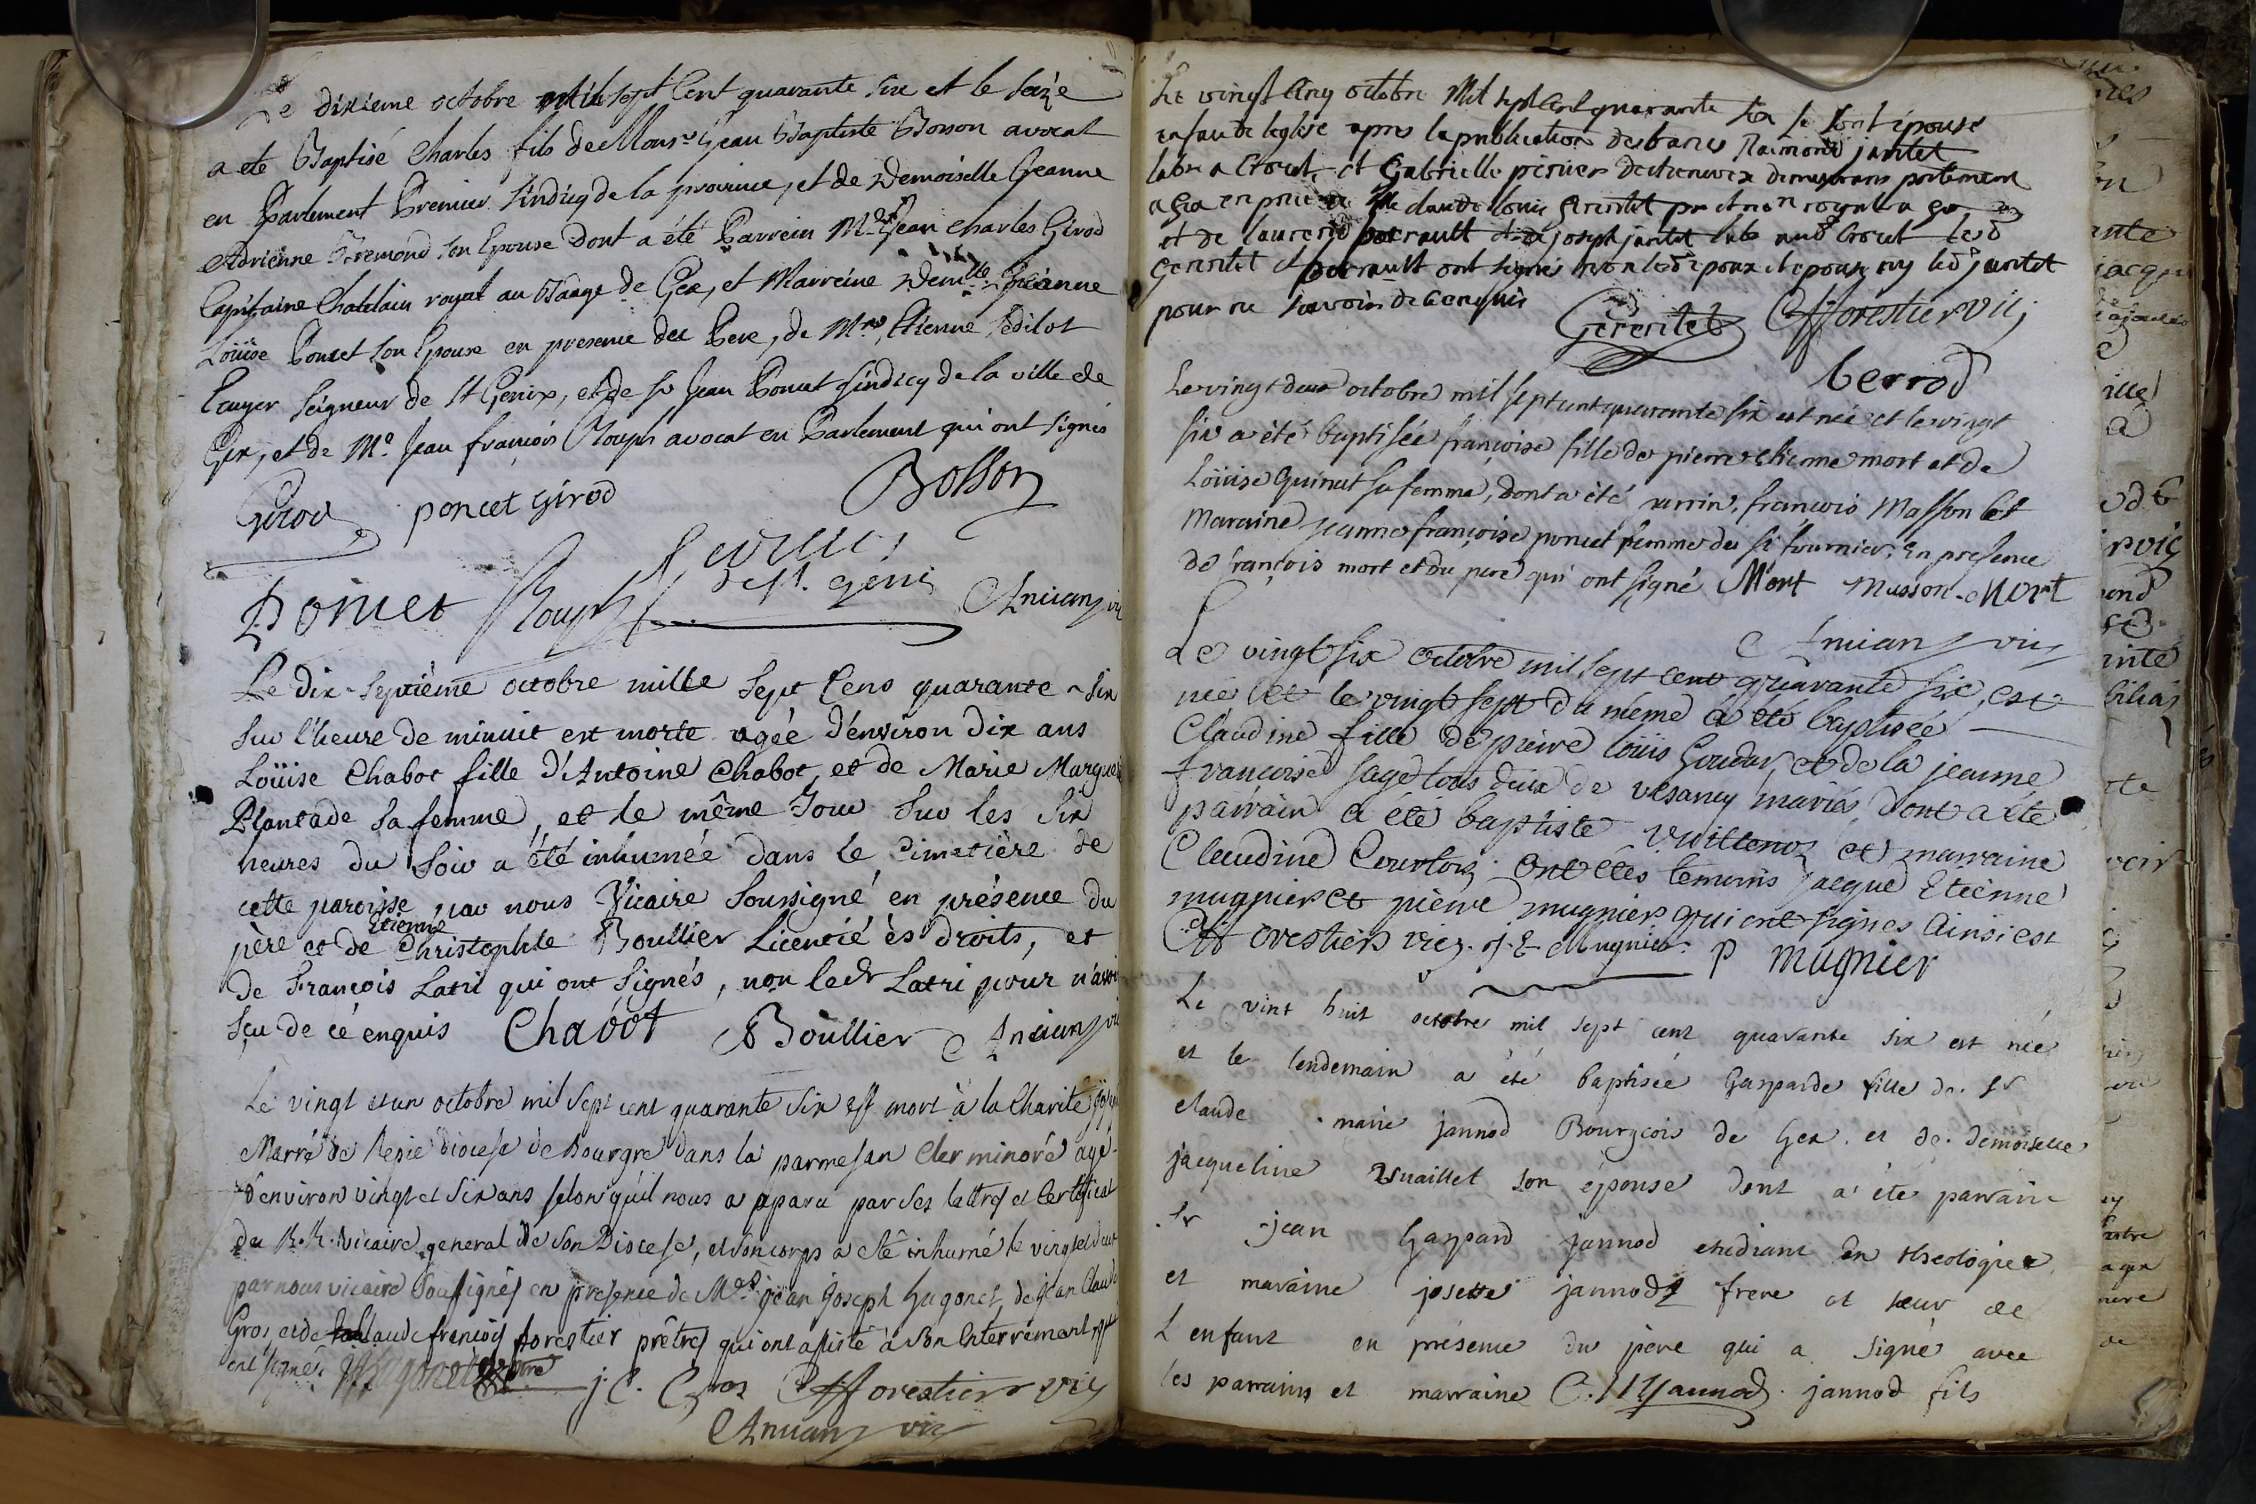 Le dixieme octobre mil sept Cent quarante six et le seize
a eté Baptisé Charles fils de Mons.r Jean Baptiste Borson avocat
en Parlement Premier sindicq de la province, et de Demoiselle Jeanne
Adrienne Tremond son Epouse Dont a été Parrein M.r Jean Charles Girod
Capitaine Chatelain royal au Bailage de Gex, et Marreine Dem.lle Jeanne
Loüise Poncet son Epouse en presence du Pere, de M.re Etienne Sedilot
Ecuyer Seigneur de St Genix, et de Sr Jean Poncet sindicq de la ville de
Gex, et de M.e Jean françois Rouph avocat en Parlement qui ont signés
Girod poncet Girod Bosson
de St. génis
Poncet Rouph Anciany vic
Le dix-septième octobre mille sept Cens quarante-six
sur l'heure de minuit est morte agée d'environ dix ans
Loüise Chabot fille d'Antoine Chabot, et de Marie Margueri
Plantade sa femme, et le même Jour sur les six
heures du soir a été inhumée dans le cimetière de
cette paroisse par nous Vicaire soussigné en présence du
père et de Etienne Christophle Boullier Licentié ès droits, et
de François Latri qui ont signés, non ledt Latri pour n'avoi
sçu de cé enquis Chabot Boullier Anciany vi
Le vingt et un octobre mil sept cent quarante six est mort à la Charité
Marré de diocese de Bourgre dans la parmesan Clerminoré agé
d'environ vingt et six ans selon qu'il nous a aparu par ses lettres et Certificat
du R.R. vicaire general de son Diocese, et son corps a eté inhumé le vingt et deux
par nous vicaire soussignés en presence de M.es jean joseph hugonet, de jean Claude
Gros, et de Claude françois forestier prêtres qui ont assisté à son Enterrement
ont signés hugonet ptre j. C. Gros Cfforestier vic
Anciany vic
Le vingt cinq octobre Mil sept Cent quarante six se sont épousé
en face de leglise apres la publication des bancs Raimond jantet
labr a Crocet et Gabrielle périer de chenevex demeurans
a Gex en presence de Me claude louis Gerentet
et de laurend perrault et de joseph jantet labr aud Crocet led
Gerentet et perrault ont signés non led epoux et epouse ny led jantet
pour ne savoir de ce enquis Gerentet Cfforestier vic
berrod
Le vingt deux octobre mil sept cent quarante six est née et le vingt
six a été baptisée françoise fille de pierre etienne mort et de
Loüise Quinet sa femme, dont a été parrin, françois Masson et
Maraine jeanne françoise poncet femme du sr fournier, En presence
de françois mort et du pere qui ont signé Mort Masson Mort
Anciany vic
Le vingt six octobre mil sept cent quarante six, est
née et le vingt sept du même a été baptisée
Claudine fille de pierre loüis Goudar, et de la jeanne
françoise sage tous deux de vesancy mariés, dont a été
parrain a été baptiste vuillermoz et marraine
Claudine Courtois. ont étés temoins jacque Etienne
mugnier et pierre mugnier qui ont signes ainsi est
Cfforestier vic. j. E Mugnier. P mugnier
Le vint huit octobre mil sept cent quarante six est née
et le lendemain a été baptisée Gasparde fille de Sr
claude marie jannod Bourgeois de Gex et de demoiselle
jacqueline vuaillet son épouse dont a été parrain
Sr jean Gaspard jannod etudiant en theologie
et maraine josette jannod frere et sœur de
L enfant en présence du père qui a signé avec
les parrains et marraine C. M Jannod. jannod fils